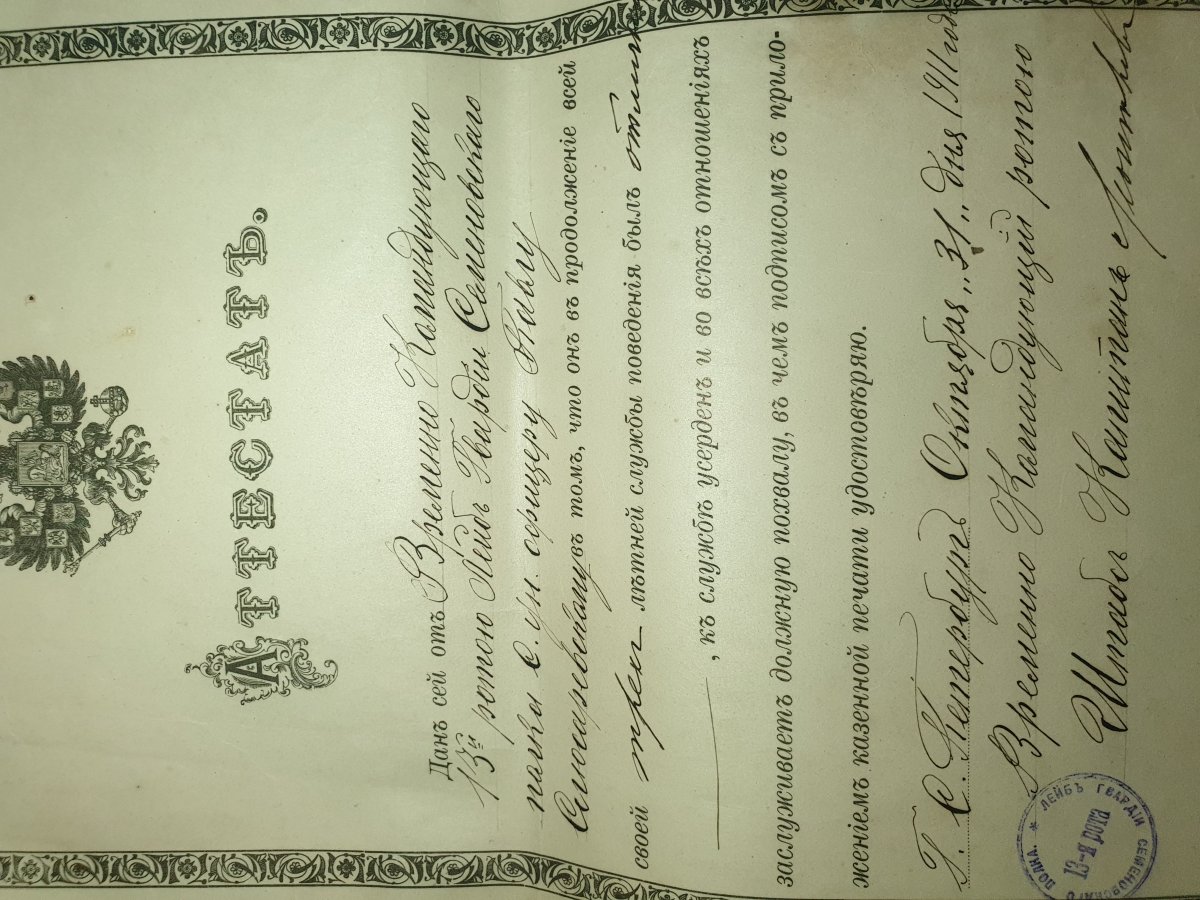 АТТЕСТАТЪ.
Данъ сей отъ Временно Командующаго
13й ротою Лейбъ Гвардіи Семеновскаго
полка С. Ун. офицеру Павлу
въ томъ, что онъ въ продолженіе всей
своей трех лѣтней службы поведенія былъ
, къ службѣ усерденъ и во всѣхъ отношеніяхъ
заслуживаетъ должную похвалу, въ чемъ подписомъ съ прило-
женіемъ казенной печати удостовѣряю.
Г. С. Петербургъ Октября „31„ дня 1911 года
Временно Командующій ротою
Штабсъ Капитанъ
ЛЕЙБЪ ГВАРДІИ СЕМЕНОВСКАГО ПОЛКА. *
13-я рота